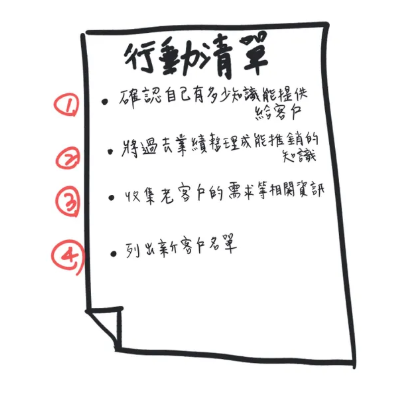 行動清單
① • 確認自己有多少知識能提供
給客戶
② • 將過去業績整理成能推銷的
知識
③ • 收集老客戶的需求等相關資訊
④ • 列出新客戶名單